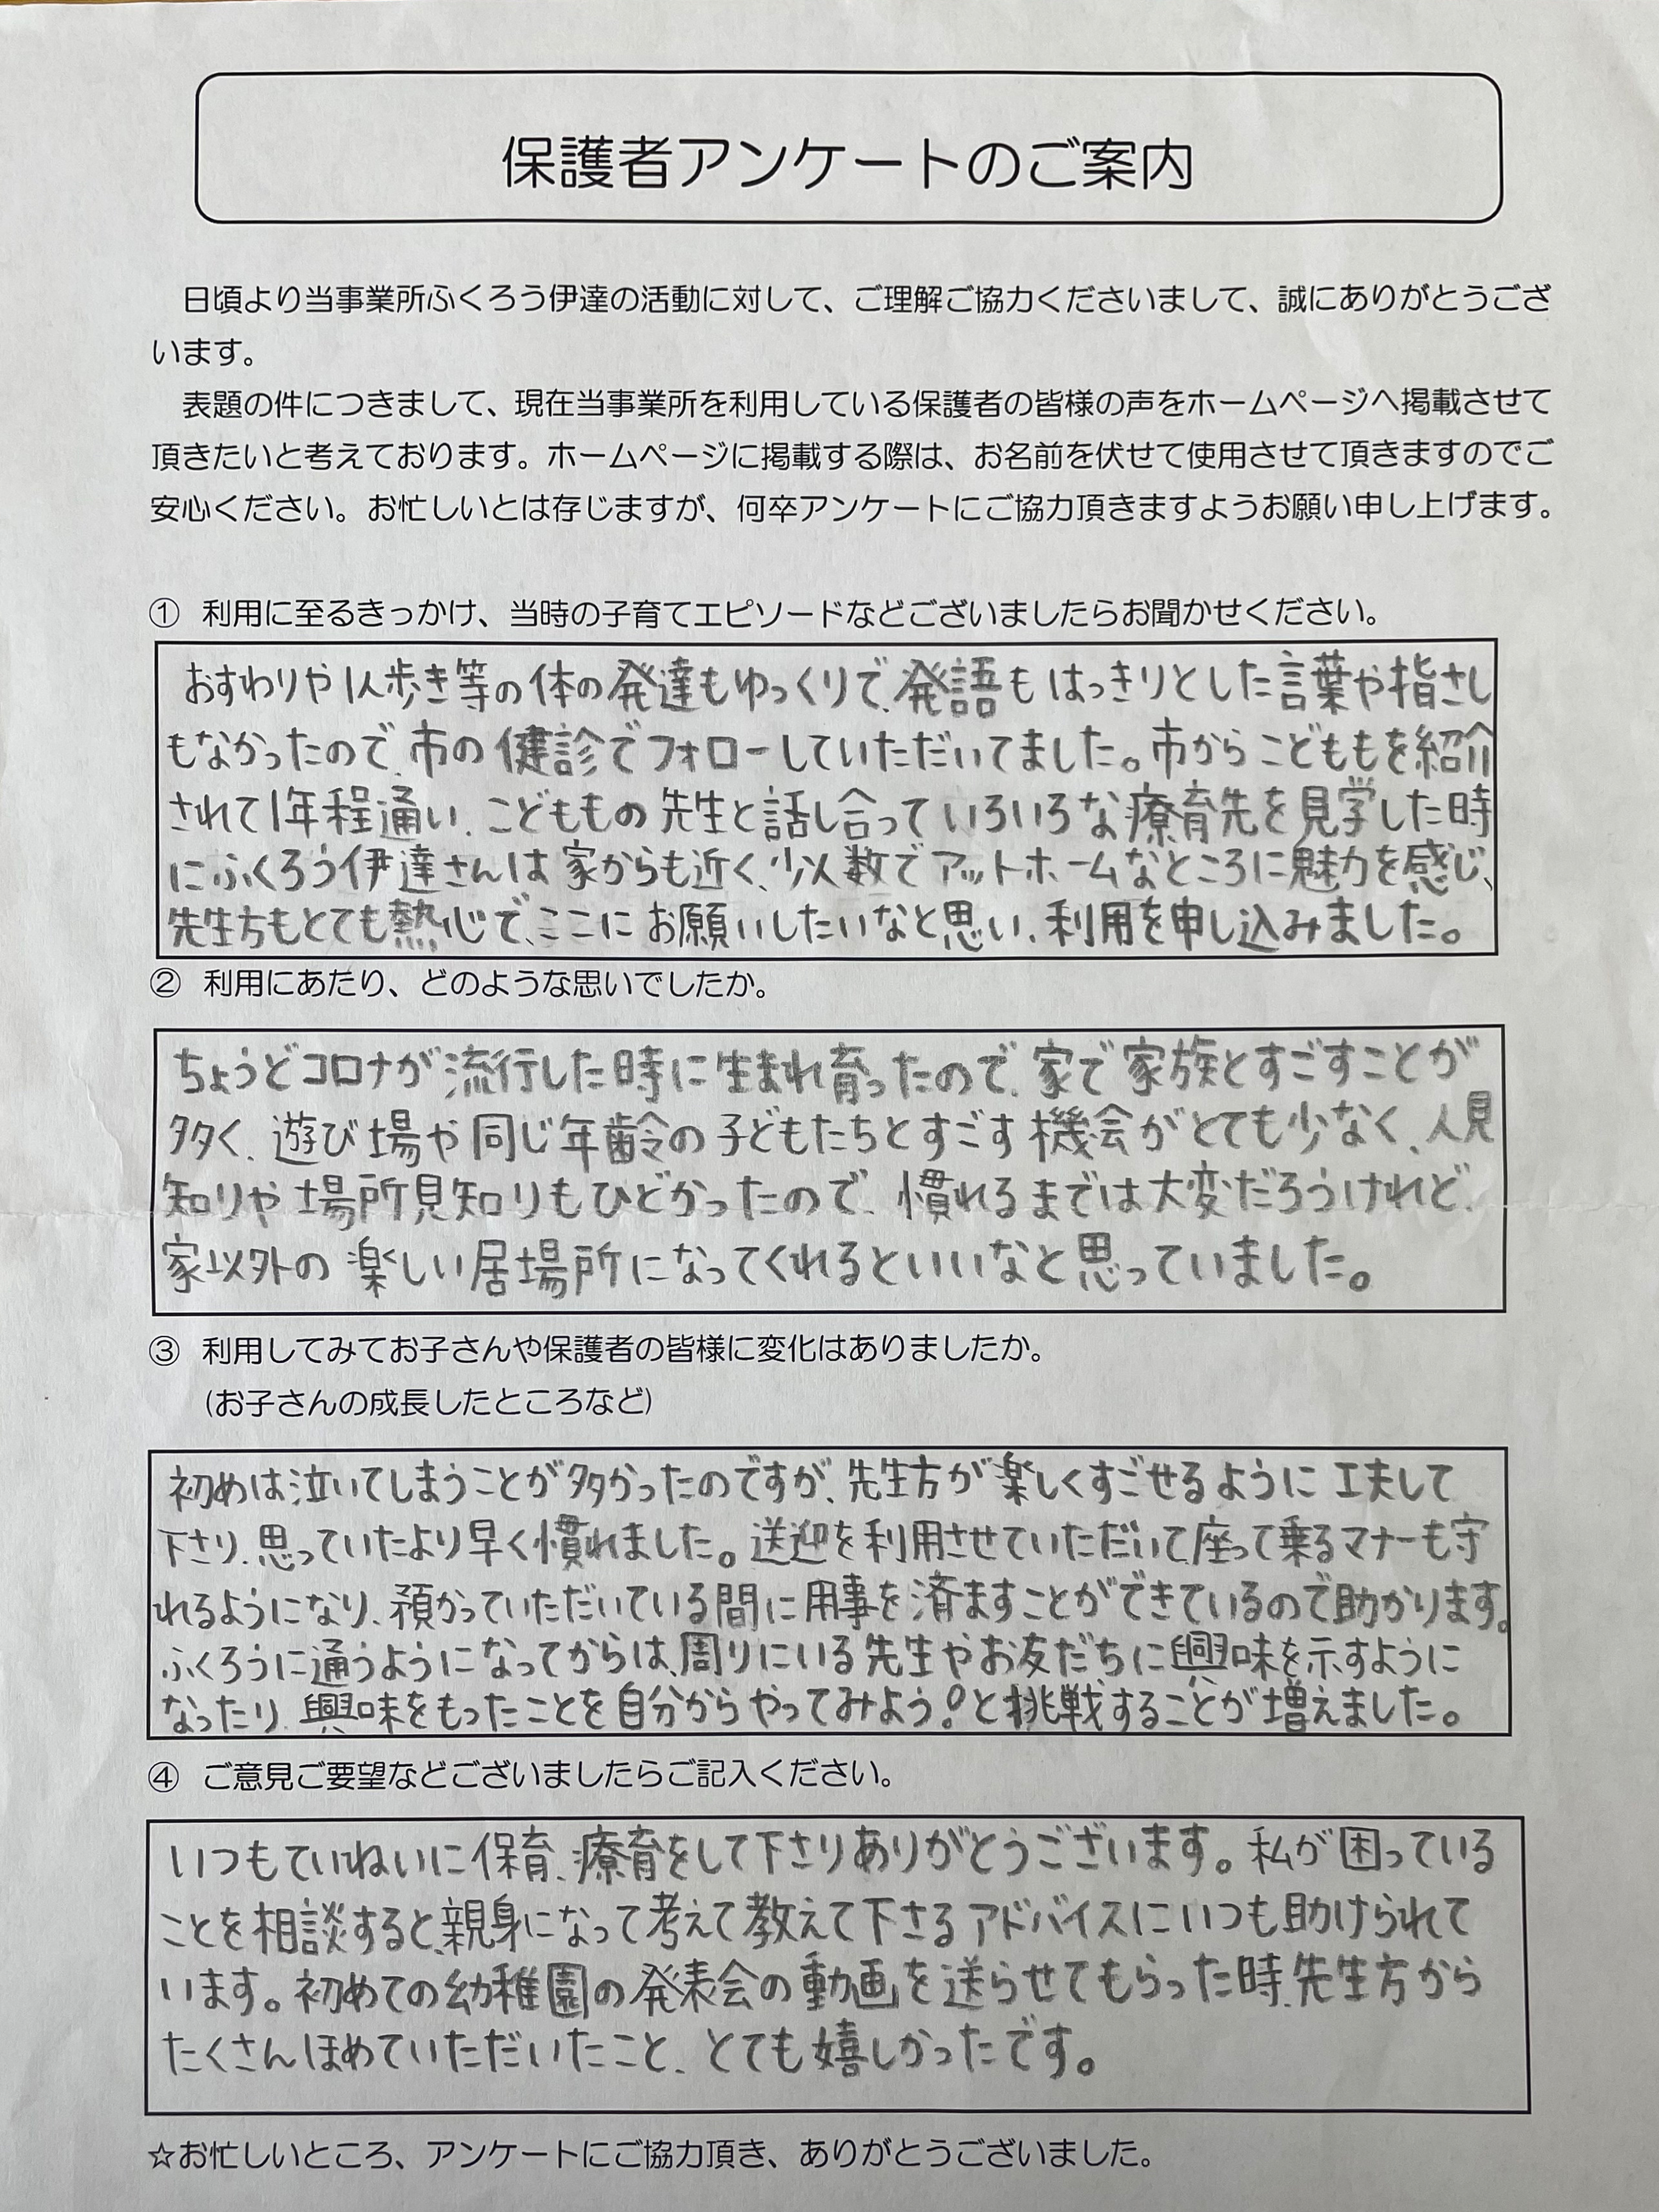 保護者アンケートのご案内
日頃より当事業所ふくろう伊達の活動に対して、ご理解ご協力くださいまして、誠にありがとうござ
います。
表題の件につきまして、現在当事業所を利用している保護者の皆様の声をホームページへ掲載させて
頂きたいと考えております。ホームページに掲載する際は、お名前を伏せて使用させて頂きますのでご
安心ください。お忙しいとは存じますが、何卒アンケートにご協力頂きますようお願い申し上げます。
① 利用に至るきっかけ、当時の子育てエピソードなどございましたらお聞かせください。
おすわりや1人歩き等の体の発達もゆっくりで、発語もはっきりとした言葉や指さし
もなかったので、市の健診でフォローしていただいてました。市からこどももを紹介
されて1年程通い、こどももの先生と話し合っていろいろな療育先を見学した時
にふくろう伊達さんは家からも近く、少人数でアットホームなところに魅力を感じ、
先生方もとても熱心で、ここにお願いしたいなと思い、利用を申し込みました。
② 利用にあたり、どのような思いでしたか。
ちょうどコロナが流行した時に生まれ育ったので、家で家族とすごすことが
多く、遊び場や同じ年齢の子どもたちとすごす機会がとても少なく、人見
知りや場所見知りもひどかったので、慣れるまでは大変だろうけれど、
家以外の楽しい居場所になってくれるといいなと思っていました。
③ 利用してみてお子さんや保護者の皆様に変化はありましたか。
(お子さんの成長したところなど)
初めは泣いてしまうことが多かったのですが、先生方が楽しくすごせるように工夫して
下さり、思っていたより早く慣れました。送迎を利用させていただいて、座って乗るマナーも守
れるようになり、預かっていただいている間に用事を済ますことができているので助かります。
ふくろうに通うようになってからは、周りにいる先生やお友だちに興味を示すように
なったり、興味をもったことを自分からやってみよう!と挑戦することが増えました。
④ ご意見ご要望などございましたらご記入ください。
いつもていねいに保育、療育をして下さりありがとうございます。私が困っている
ことを相談すると、親身になって考えて教えて下さるアドバイスにいつも助けられて
います。初めての幼稚園の発表会の動画を送らせてもらった時、先生方から
たくさんほめていただいたこと、とても嬉しかったです。
☆お忙しいところ、アンケートにご協力頂き、ありがとうございました。